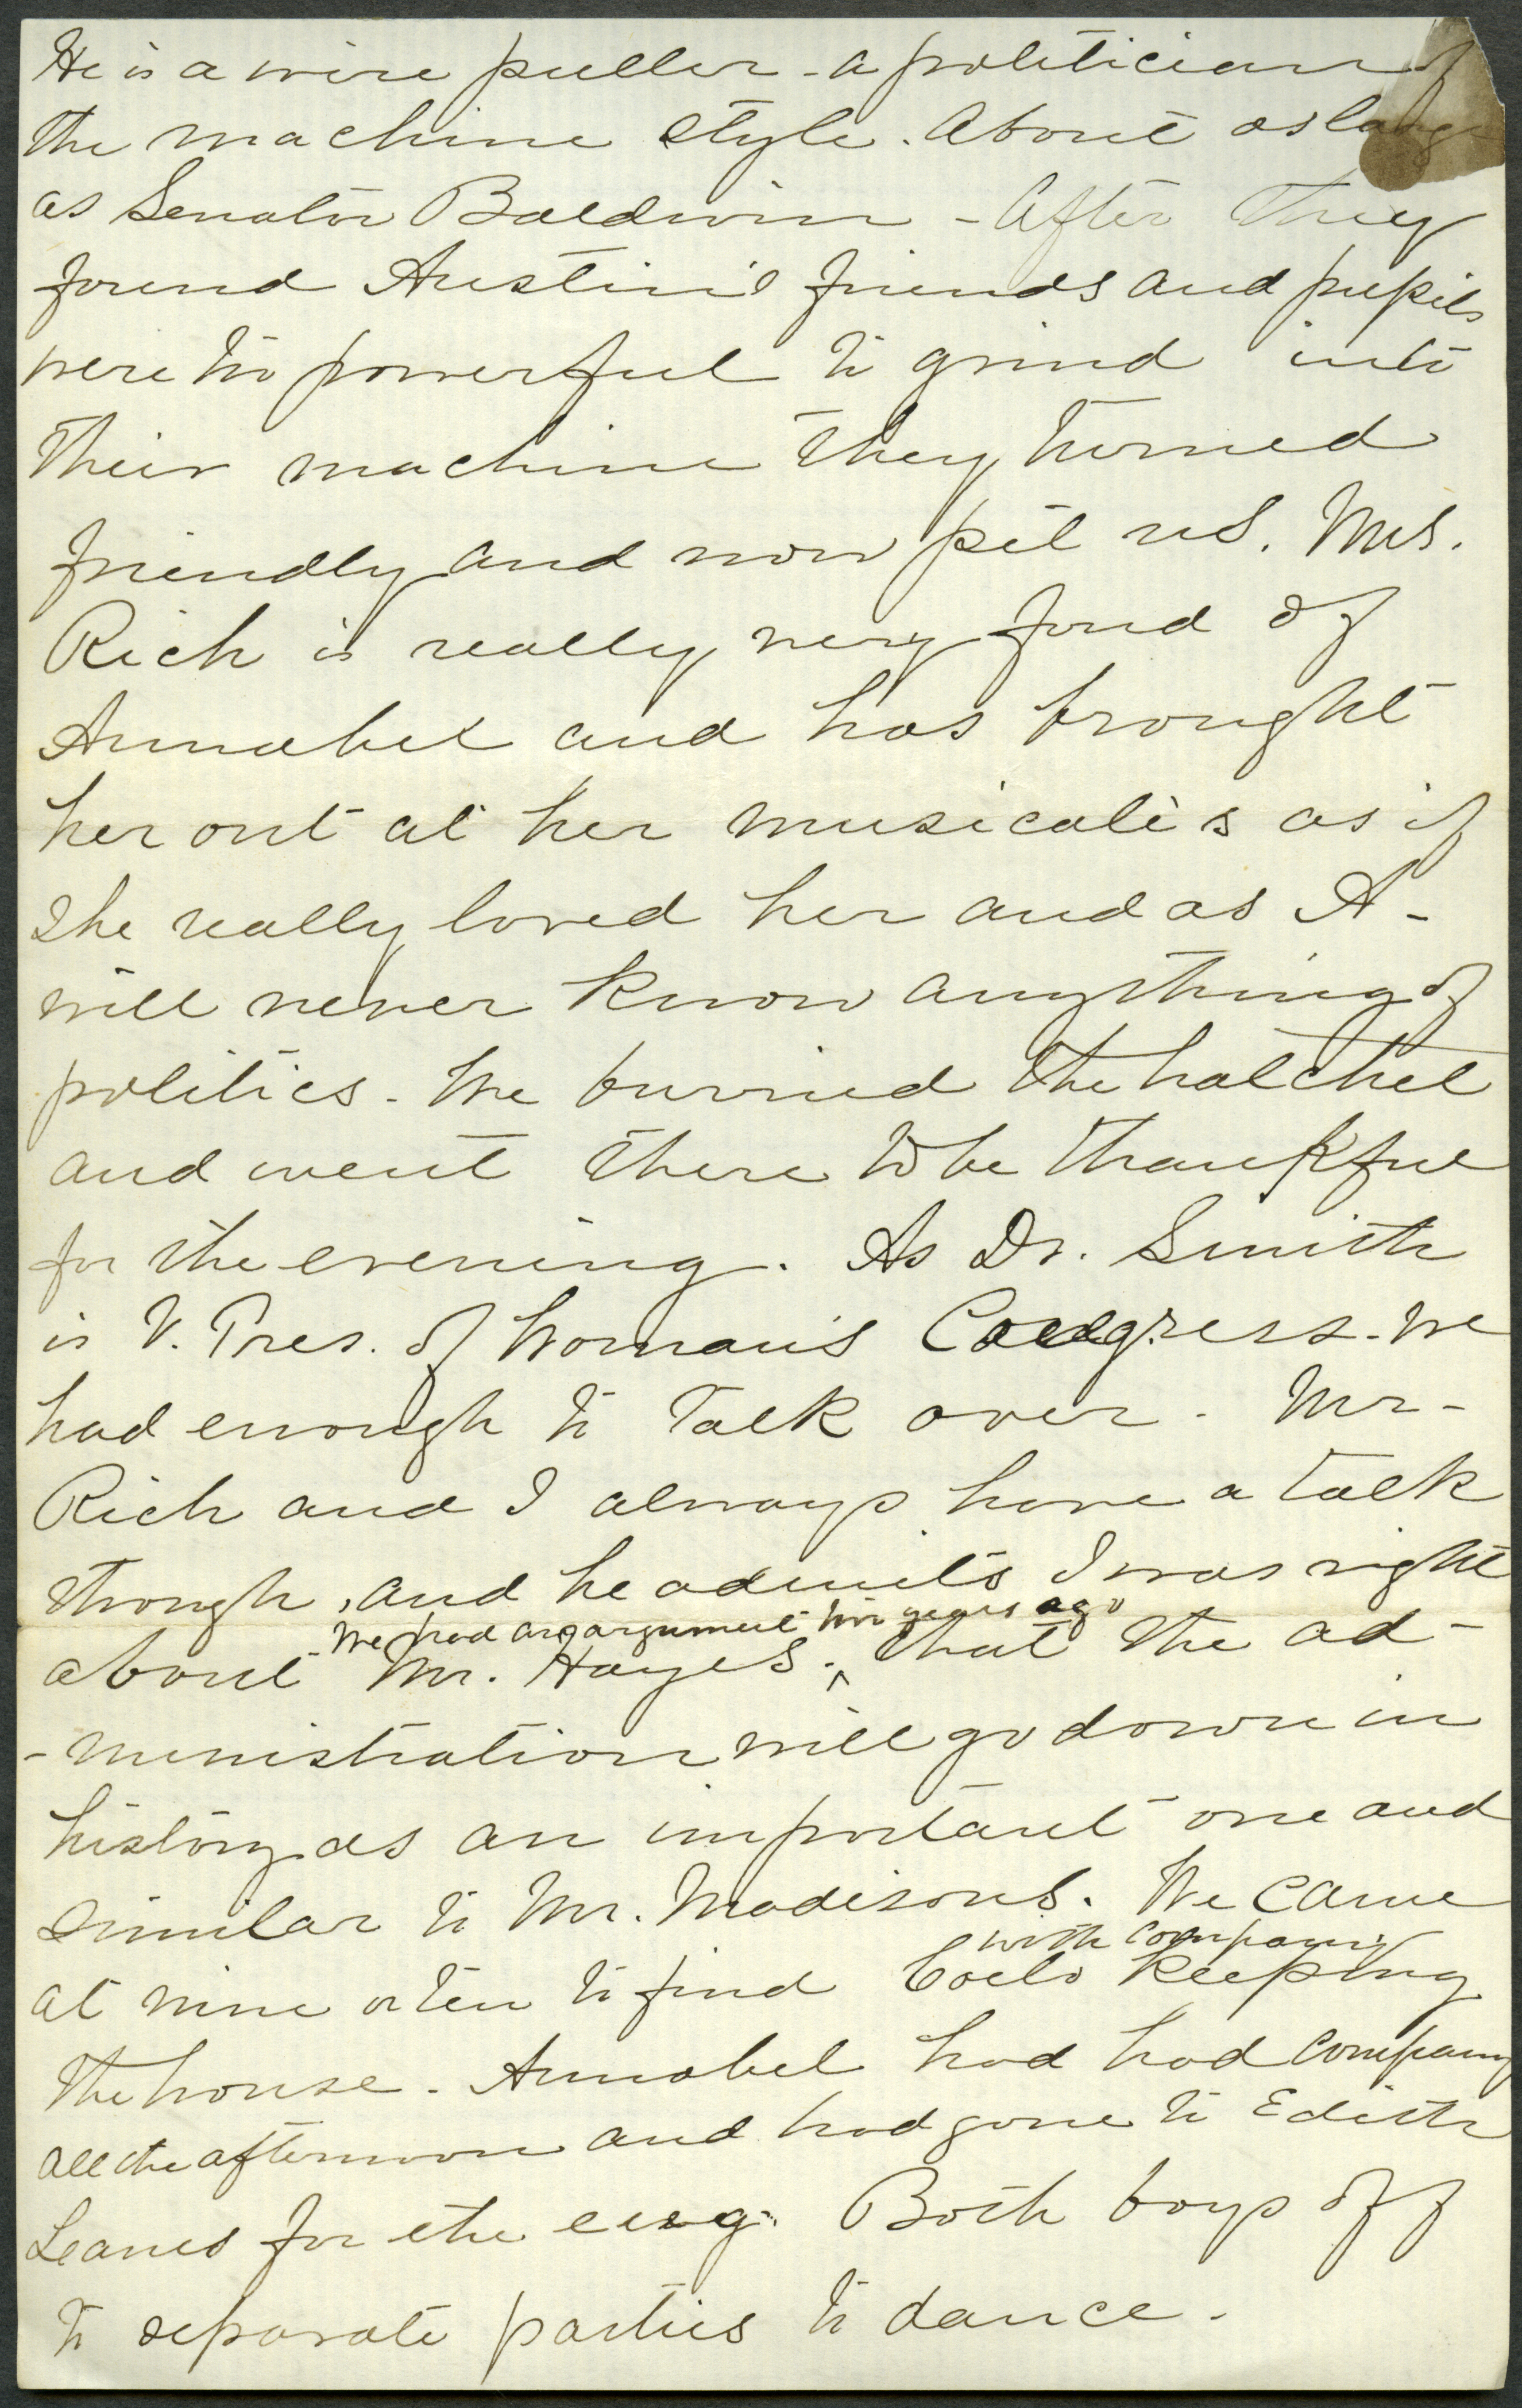 He is a wire puller - a politician of
the machine style. About as large
as Senator Baldwin - After they
found Austin's friends and pupils
were too powerful to grind into
their machine they turned
friendly and now pet us. Mrs.
Rich is really very fond of
Annabel and has brought
her out at her musicales as if
she really loved her and as A-
will never know anything of
politics. We burried the hatchet
and went there to be thankful
for the evening. As Dr. Smith
is V. Pres. of Woman's Congress. we
had enough to talk over. Mr-
Rich and I always have a talk
though, and he admits I was right
We had an argument two years ago
about Mr. Hayes. ^ that the ad-
-ministration will go down in
history as an important one and
similar to Mr. Madisons. We came
with company
at nine or ten to find keeping
the house. Annabel had had company
all the afternoon and had gone to Edith
Leanes for the eveg. Both boys off
to separate parties to dance.